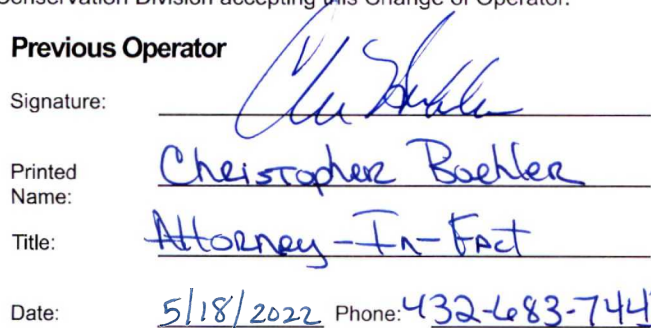 Conservation Division accepting this Change of Operator.
Previous Operator
Signature:
Printed Name: Christopher Boehler
Title: Attorney-In-Fact
Date: 5/18/2022 Phone: 432-683-744